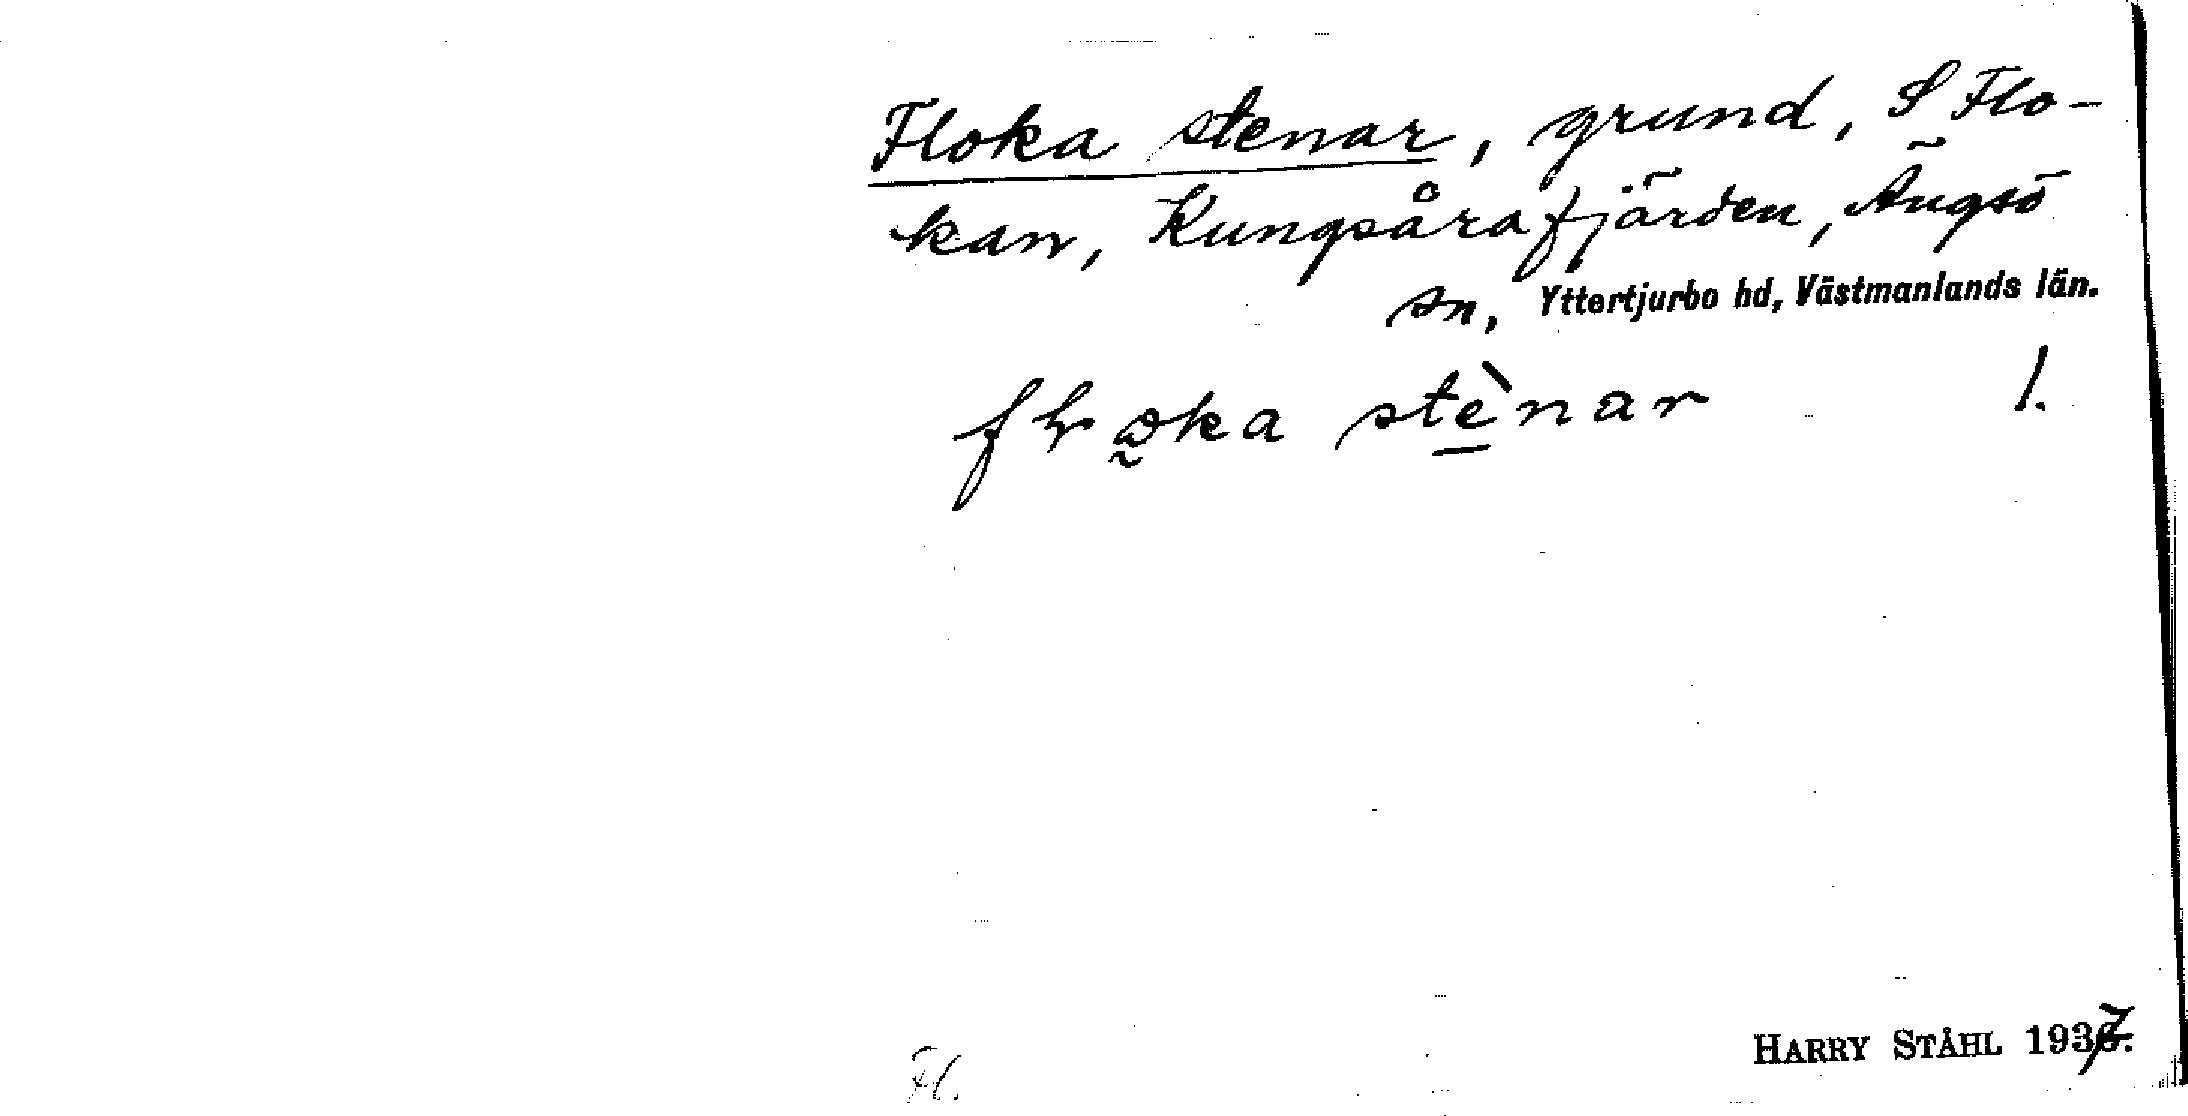 Floka stenar, grund, S Flo-
kan, Kungsårafjärden, Ängsö
sn, Yttertjurbo hd, Västmanlands län.
stènar 1.
Fl.
HARRY STÅHL 1937.